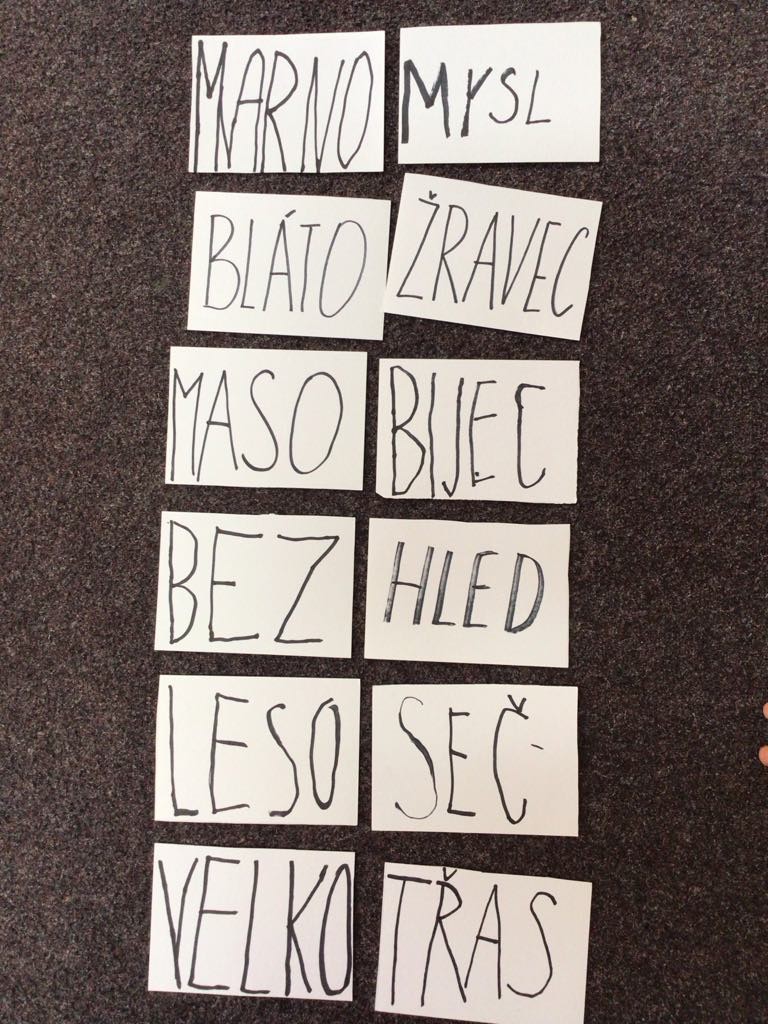 MARNO MYSL
BLÁTO ŽRAVEC
MASO BIJEC
BEZ HLED
LESO SEČ
VELKO TŘAS